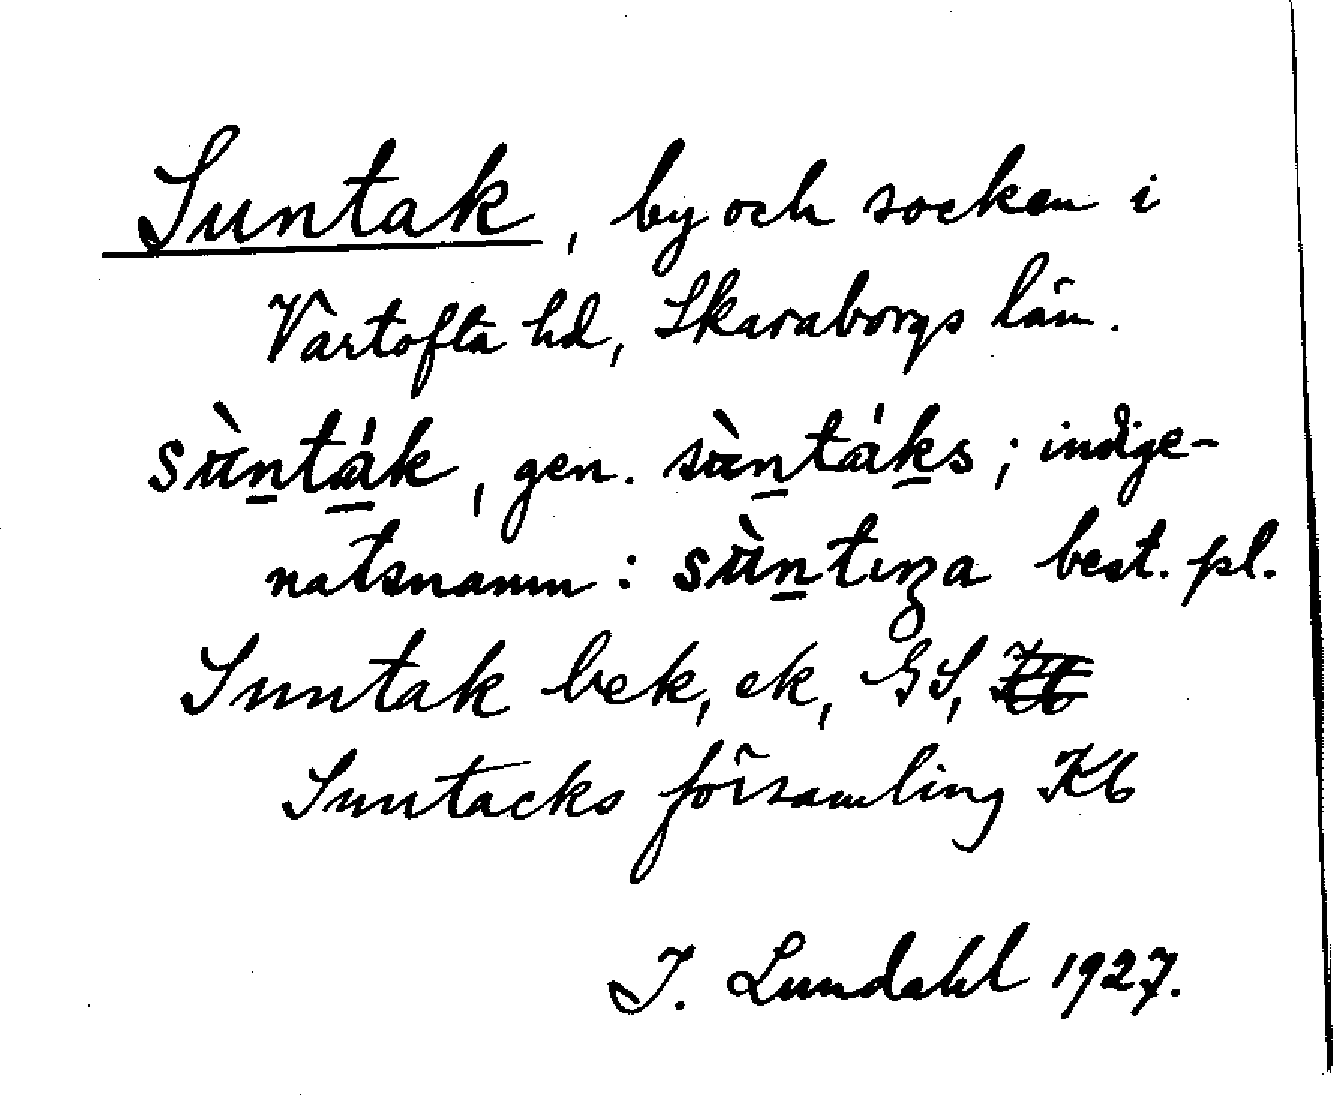 Suntak, by och socken i
Vartofta hd, Skaraborgs län.
sùn̲tá̲k, gen. sùn̲ták̲s; indige-
natsnamn: sùn̲tıŋa best. pl.
Suntak bek, ek, GS,
Suntacks församling Kb
I. Lundahl 1927.